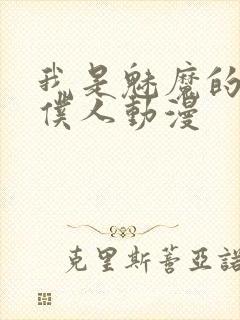 我是魅魔的
僕人動漫
克里斯蒂亞諾